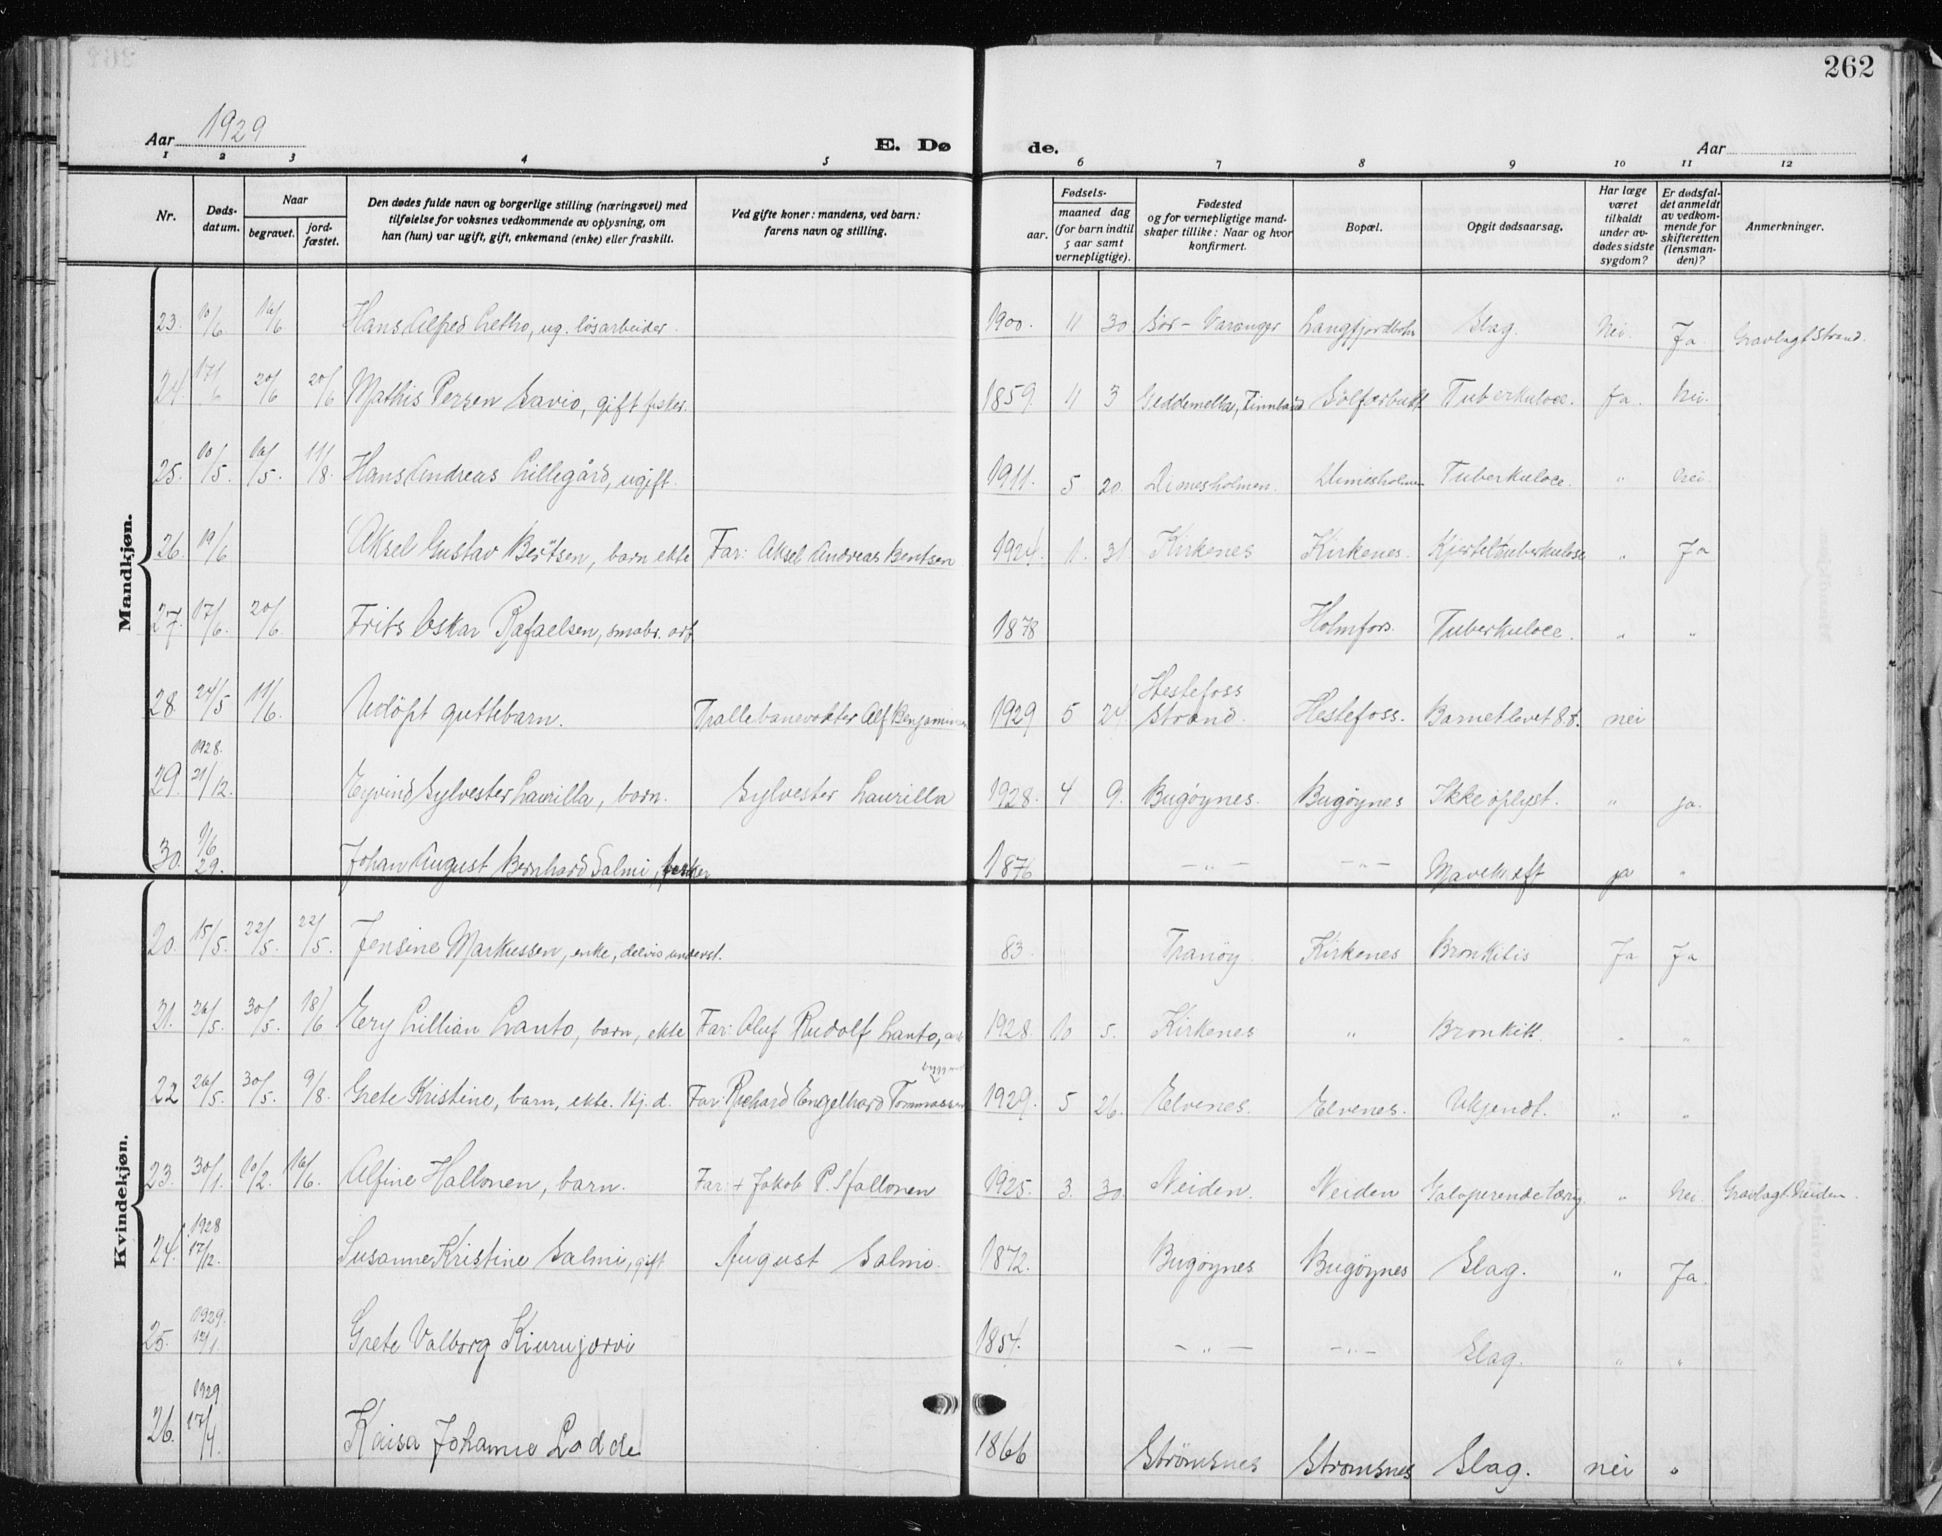 262
Aar 1929
E. Døde.
Aar
1 2 3 4 5 6 7 8 9 10 11 12
Nr.
Døds-datum.
Naar
begravet.
jord-fæstet.
Den dødes fulde navn og borgerlige stilling (næringsvei) med
tilføielse for voksnes vedkommende av oplysning, om
han (hun) var ugift, gift, enkemand (enke) eller fraskilt.
Ved gifte koner: mandens, ved barn:
farens navn og stilling.
Fødsels-
aar.
maaned dag
(for barn indtil
5 aar samt
vernepligtige).
Fødested
og for vernepligtige mand-
skaper tillike: Naar og hvor
konfirmert.
Bopæl.
Opgit dødsaarsag.
Har læge
været
tilkaldt
under av-
dødes sidste
sygdom?
Er dødsfal-
det anmeldt
av vedkom-
mende for
skifteretten
(lensman-
den)?
Anmerkninger.
Mandkjøn.
23. 10/6 16/6 Hans Alfred, ug. løsarbeider. 1900. 11 30 Sør-Varanger Slag. Nei. Ja. Gravlagt Strand.
24. 17/6 20/6 20/6 Mathis Persen Savio, gift fisker. 1859 11 3 Tuberkulose. Ja. Nei.
25. 10/5 16/5. 11/8. Hans Andreas Lillegård, ugift. 1911. 5 20. Tuberkulose. " Nei.
26. 19/6 Aksel Gustav Bertsen, barn ekte Far: Aksel Andreas Bentsen 1924. 1. 31 Kirkenes Kirkenes. Kjerteltuberkulose " Ja
27. 17/6. 20/6. Frits Oskar Rafaelsen, småbr. arb 1878 Holmfors. Tuberkulose. " "
28 24/5 11/6. Udöpt guttebarn. Trallebanevokter Alf Benjaminsen 1929 5 24. Hestefoss
Strand. Hestefoss. Barnet levet 8 d. nei
29. 1928. 21/12. Eyvind Sylvester Laurilla, barn. Sylvester Laurilla 1928. 4 9. Bugøynes. Bugøynes Ikke oplyst. " ja.
30. 9/6 29. Johan August Bernhard Salmi, fisker 1876 -"- -"- Mavekreft ja "
Kvindekjøn.
20. 15/5. 22/5. 22/5. Jensine Markussen, enke, delvis underst. 83. Tranøy. Kirkenes Bronkitis Ja Ja
21. 26/5. 30/5. 18/6 Lillian Lanto, barn, ekte Far: Oluf Rudolf Lanto, arb 1928 10 5. Kirkenes " Bronkitt. " "
22 26/5. 30/5. 9/8. Grete Kristine, barn, ekte. Hj. d. Far: Richard Engelhard Tommassen 1929. 5 26. Elvenes. Elvenes. Ukjendt. " "
23. 30/1. 10/2. 16/6. Alfine Hallonen, barn. Far: + Jakob P. Hallonen 1925. 3. 30. Neiden. Neiden Galoperende tæring " Nei Gravlagt Neiden.
24. 1928 17/12. Susanne Kristine Salmi, gift August Salmi. 1872. Bugøynes Bugøynes Slag. " Ja.
25. 1929. 12/1. Grete Valborg Kiurujærvi 1854. -"- -"- Slag. " "
26. 1929 17/4. Kaisa Johanne Ladde 1866 Strømsnes Strømsnes Slag. nei "